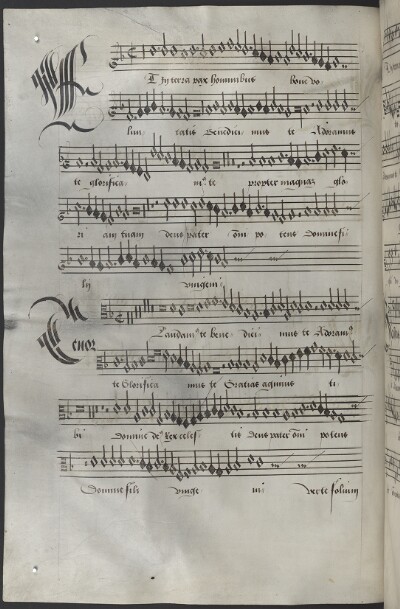 Et in terra pax hominibus bone vo
lun tatis Benedici mus te Adoramus
te glorifica m⁹ te propter magnaz glo
ri am tuam deus pater om̄ po tens Domine fi
ly unigeni
Tenor
Laudam⁹ te bene dici mus te Adoram⁹
te Glorifica mus te Gratias agimus ti
bi Domine de⁹ Rex celes tis Deus pater om̄i potens
Domine fili unige ni verte folium